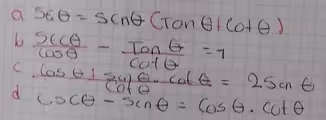 a Secθ = Senθ (Tanθ + Cotθ)
b Secθ/Cosθ - Tanθ/Cotθ = 1
c Cosθ + Senθ · Cotθ / Cotθ = 2 Senθ
d Cscθ - Senθ = Cosθ · Cotθ